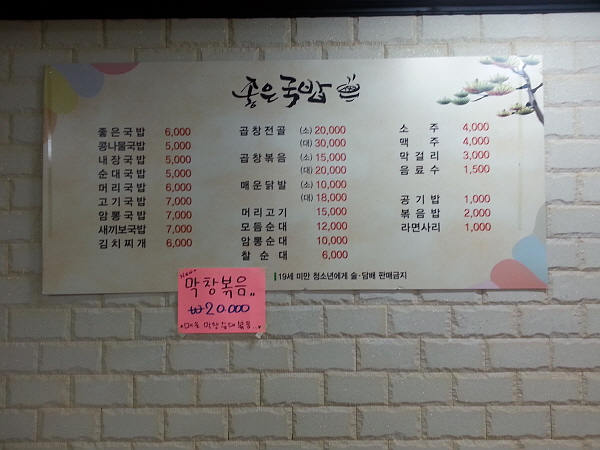 좋은국밥
좋은국밥 6,000
콩나물국밥 5,000
내장국밥 5,000
순대국밥 5,000
머리국밥 6,000
고기국밥 7,000
암뽕국밥 7,000
새끼보국밥 7,000
김치찌개 6,000
곱창전골 (소) 20,000
(대) 30,000
곱창볶음 (소) 15,000
(대) 20,000
매운닭발 (소) 10,000
(대) 18,000
머리고기 15,000
모듬순대 12,000
암뽕순대 10,000
찰순대 6,000
소주 4,000
맥주 4,000
막걸리 3,000
음료수 1,500
공기밥 1,000
볶음밥 2,000
라면사리 1,000
19세 미만 청소년에게 술·담배 판매금지
New
막창볶음
₩20,000
막창순대볶음